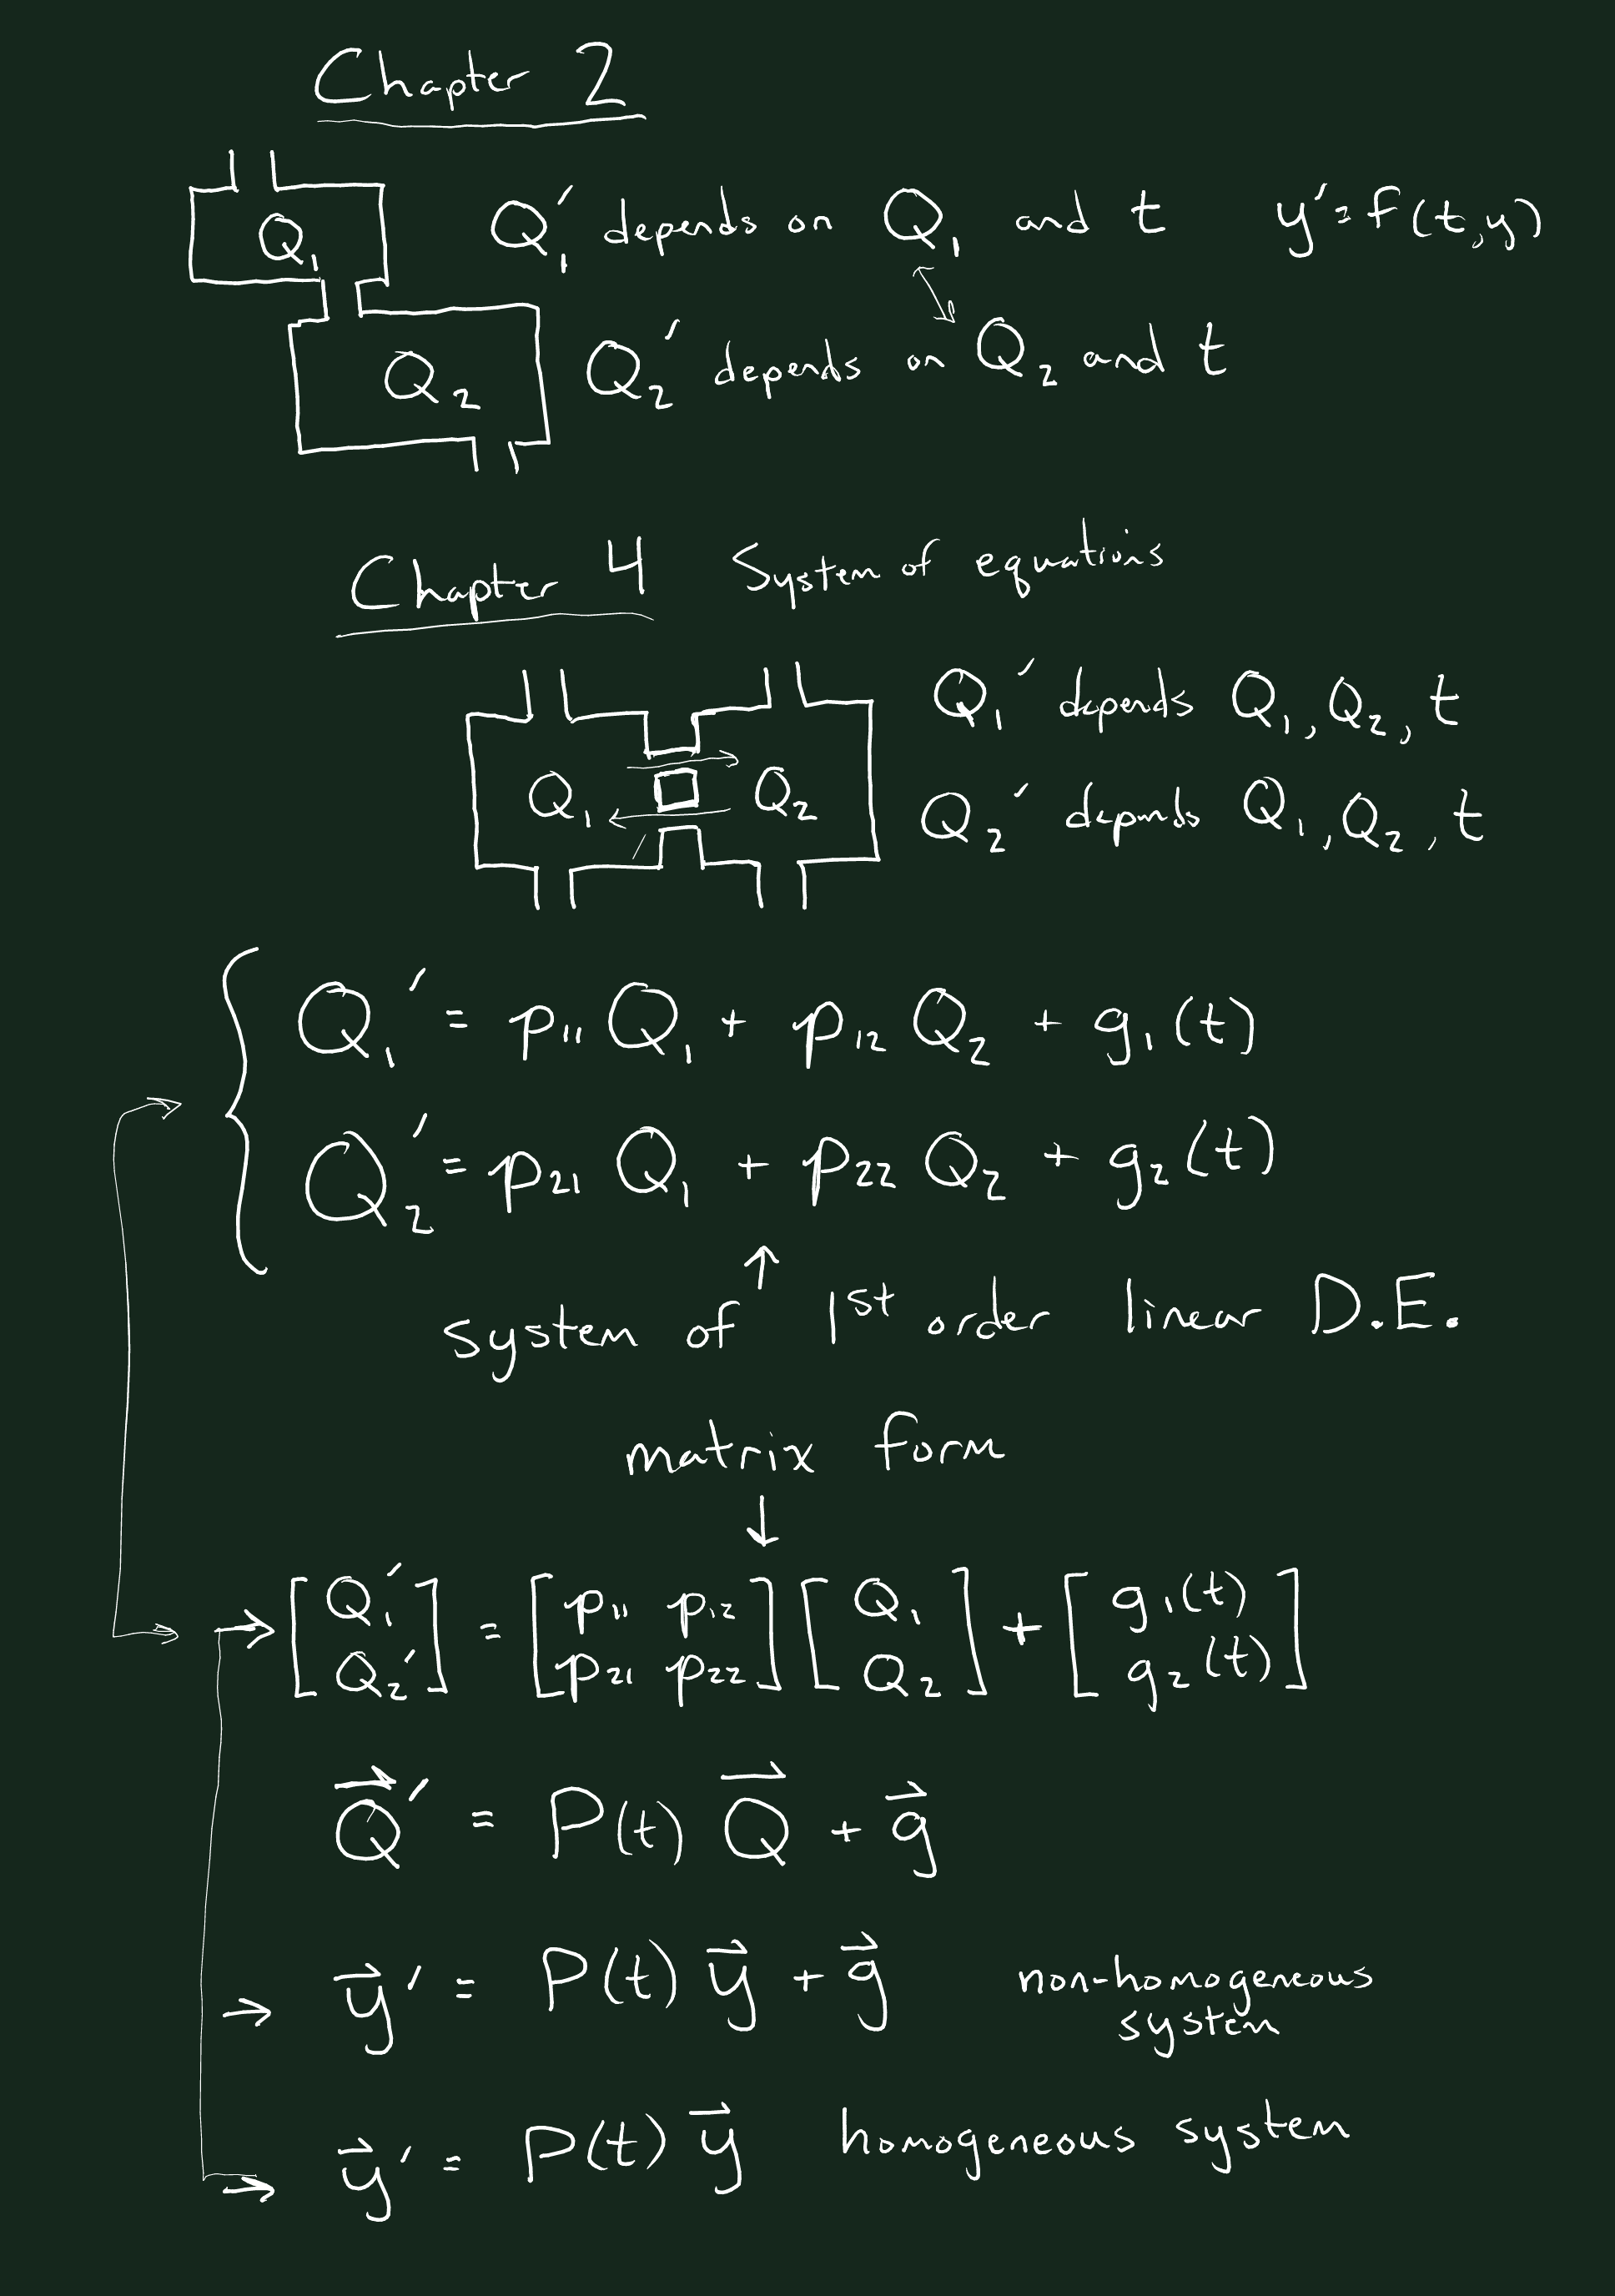 Chapter 2
Q₁
Q₁' depends on Q₁ and t y' = f(t,y)
Q₂
Q₂' depends on Q₂ and t
Chapter 4 System of equations
Q₁ Q₂
Q₁' depends Q₁, Q₂, t
Q₂' depends Q₁, Q₂, t
Q₁' = p₁₁ Q₁ + p₁₂ Q₂ + g₁(t)
Q₂' = p₂₁ Q₁ + p₂₂ Q₂ + g₂(t)
↑
system of 1st order linear D.E.
matrix form
↓
→ [Q₁' Q₂'] = [p₁₁ p₁₂ p₂₁ p₂₂] [Q₁ Q₂] + [g₁(t) g₂(t)]
Q⃗' = P(t) Q⃗ + g⃗
→ y⃗' = P(t) y⃗ + g⃗ non-homogeneous
system
→ y⃗' = P(t) y⃗ homogeneous system